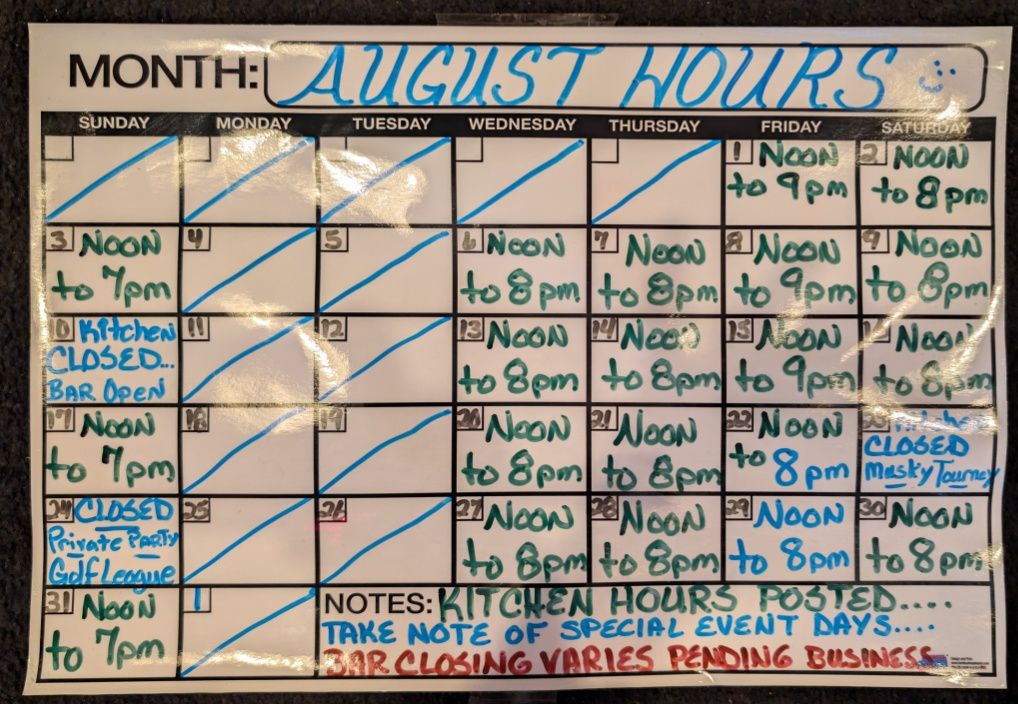 MONTH: AUGUST HOURS
SUNDAY MONDAY TUESDAY WEDNESDAY THURSDAY FRIDAY SATURDAY
1 NOON
to 9pm
2 NOON
to 8pm
3 NOON
to 7pm
4
5
6 NOON
to 8pm
7 NOON
to 8pm
8 NOON
to 9pm
9 NOON
to 8pm
10 Kitchen
CLOSED...
BAR OPEN
11
12
13 NOON
to 8pm
14 NOON
to 8pm
15 NOON
to 9pm
NOON
to 8pm
17 NOON
to 7pm
18
19
20 NOON
to 8pm
21 NOON
to 8pm
22 NOON
to 8pm
Kitchen
CLOSED
Musky Tourney
24 CLOSED
Private PARTY
Golf League
25
26
27 NOON
to 8pm
28 NOON
to 8pm
29 NOON
to 8pm
30 NOON
to 8pm
31 NOON
to 7pm
1
NOTES: KITCHEN HOURS POSTED....
TAKE NOTE OF SPECIAL EVENT DAYS....
BAR CLOSING VARIES PENDING BUSINESS